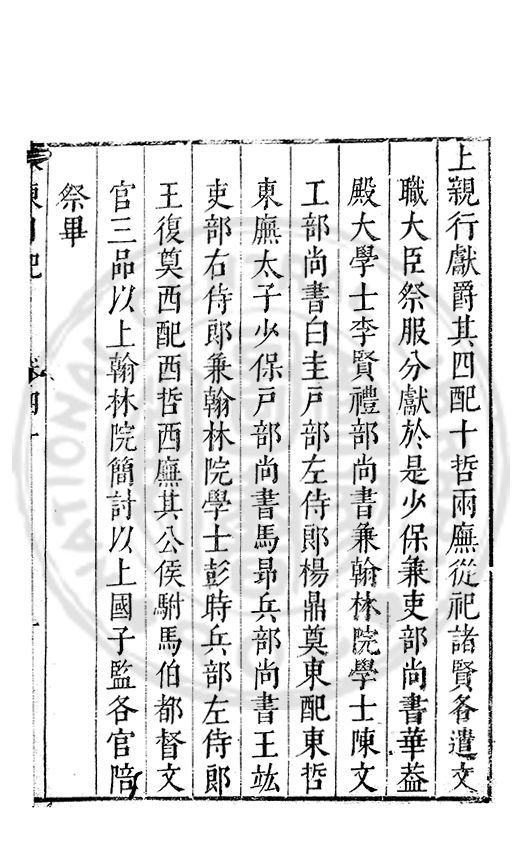 上親行獻爵其四配十哲兩廡從祀諸賢各遣文
職大臣祭服分獻於是少保兼吏部尚書華葢
殿大學士李賢禮部尚書兼翰林院學士陳文
工部尚書白圭戶部左侍郎楊鼎奠東配東哲
東廡太子少保戶部尚書馬昻兵部尚書王竑
吏部右侍郎兼翰林院學士彭時兵部左侍郎
王復奠西配西哲西廡其公侯駙馬伯都督文
官三品以上翰林院簡討以上國子監各官陪
祭畢